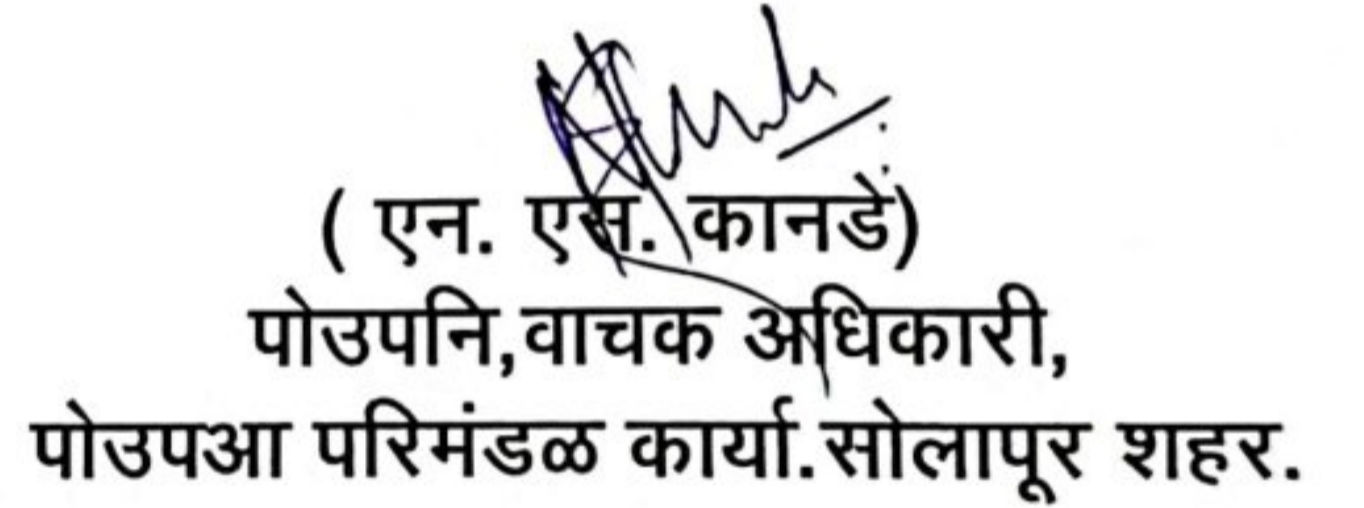 ( एन. एस. कानडे)
पोउपनि,वाचक अधिकारी,
पोउपआ परिमंडळ कार्या.सोलापूर शहर.